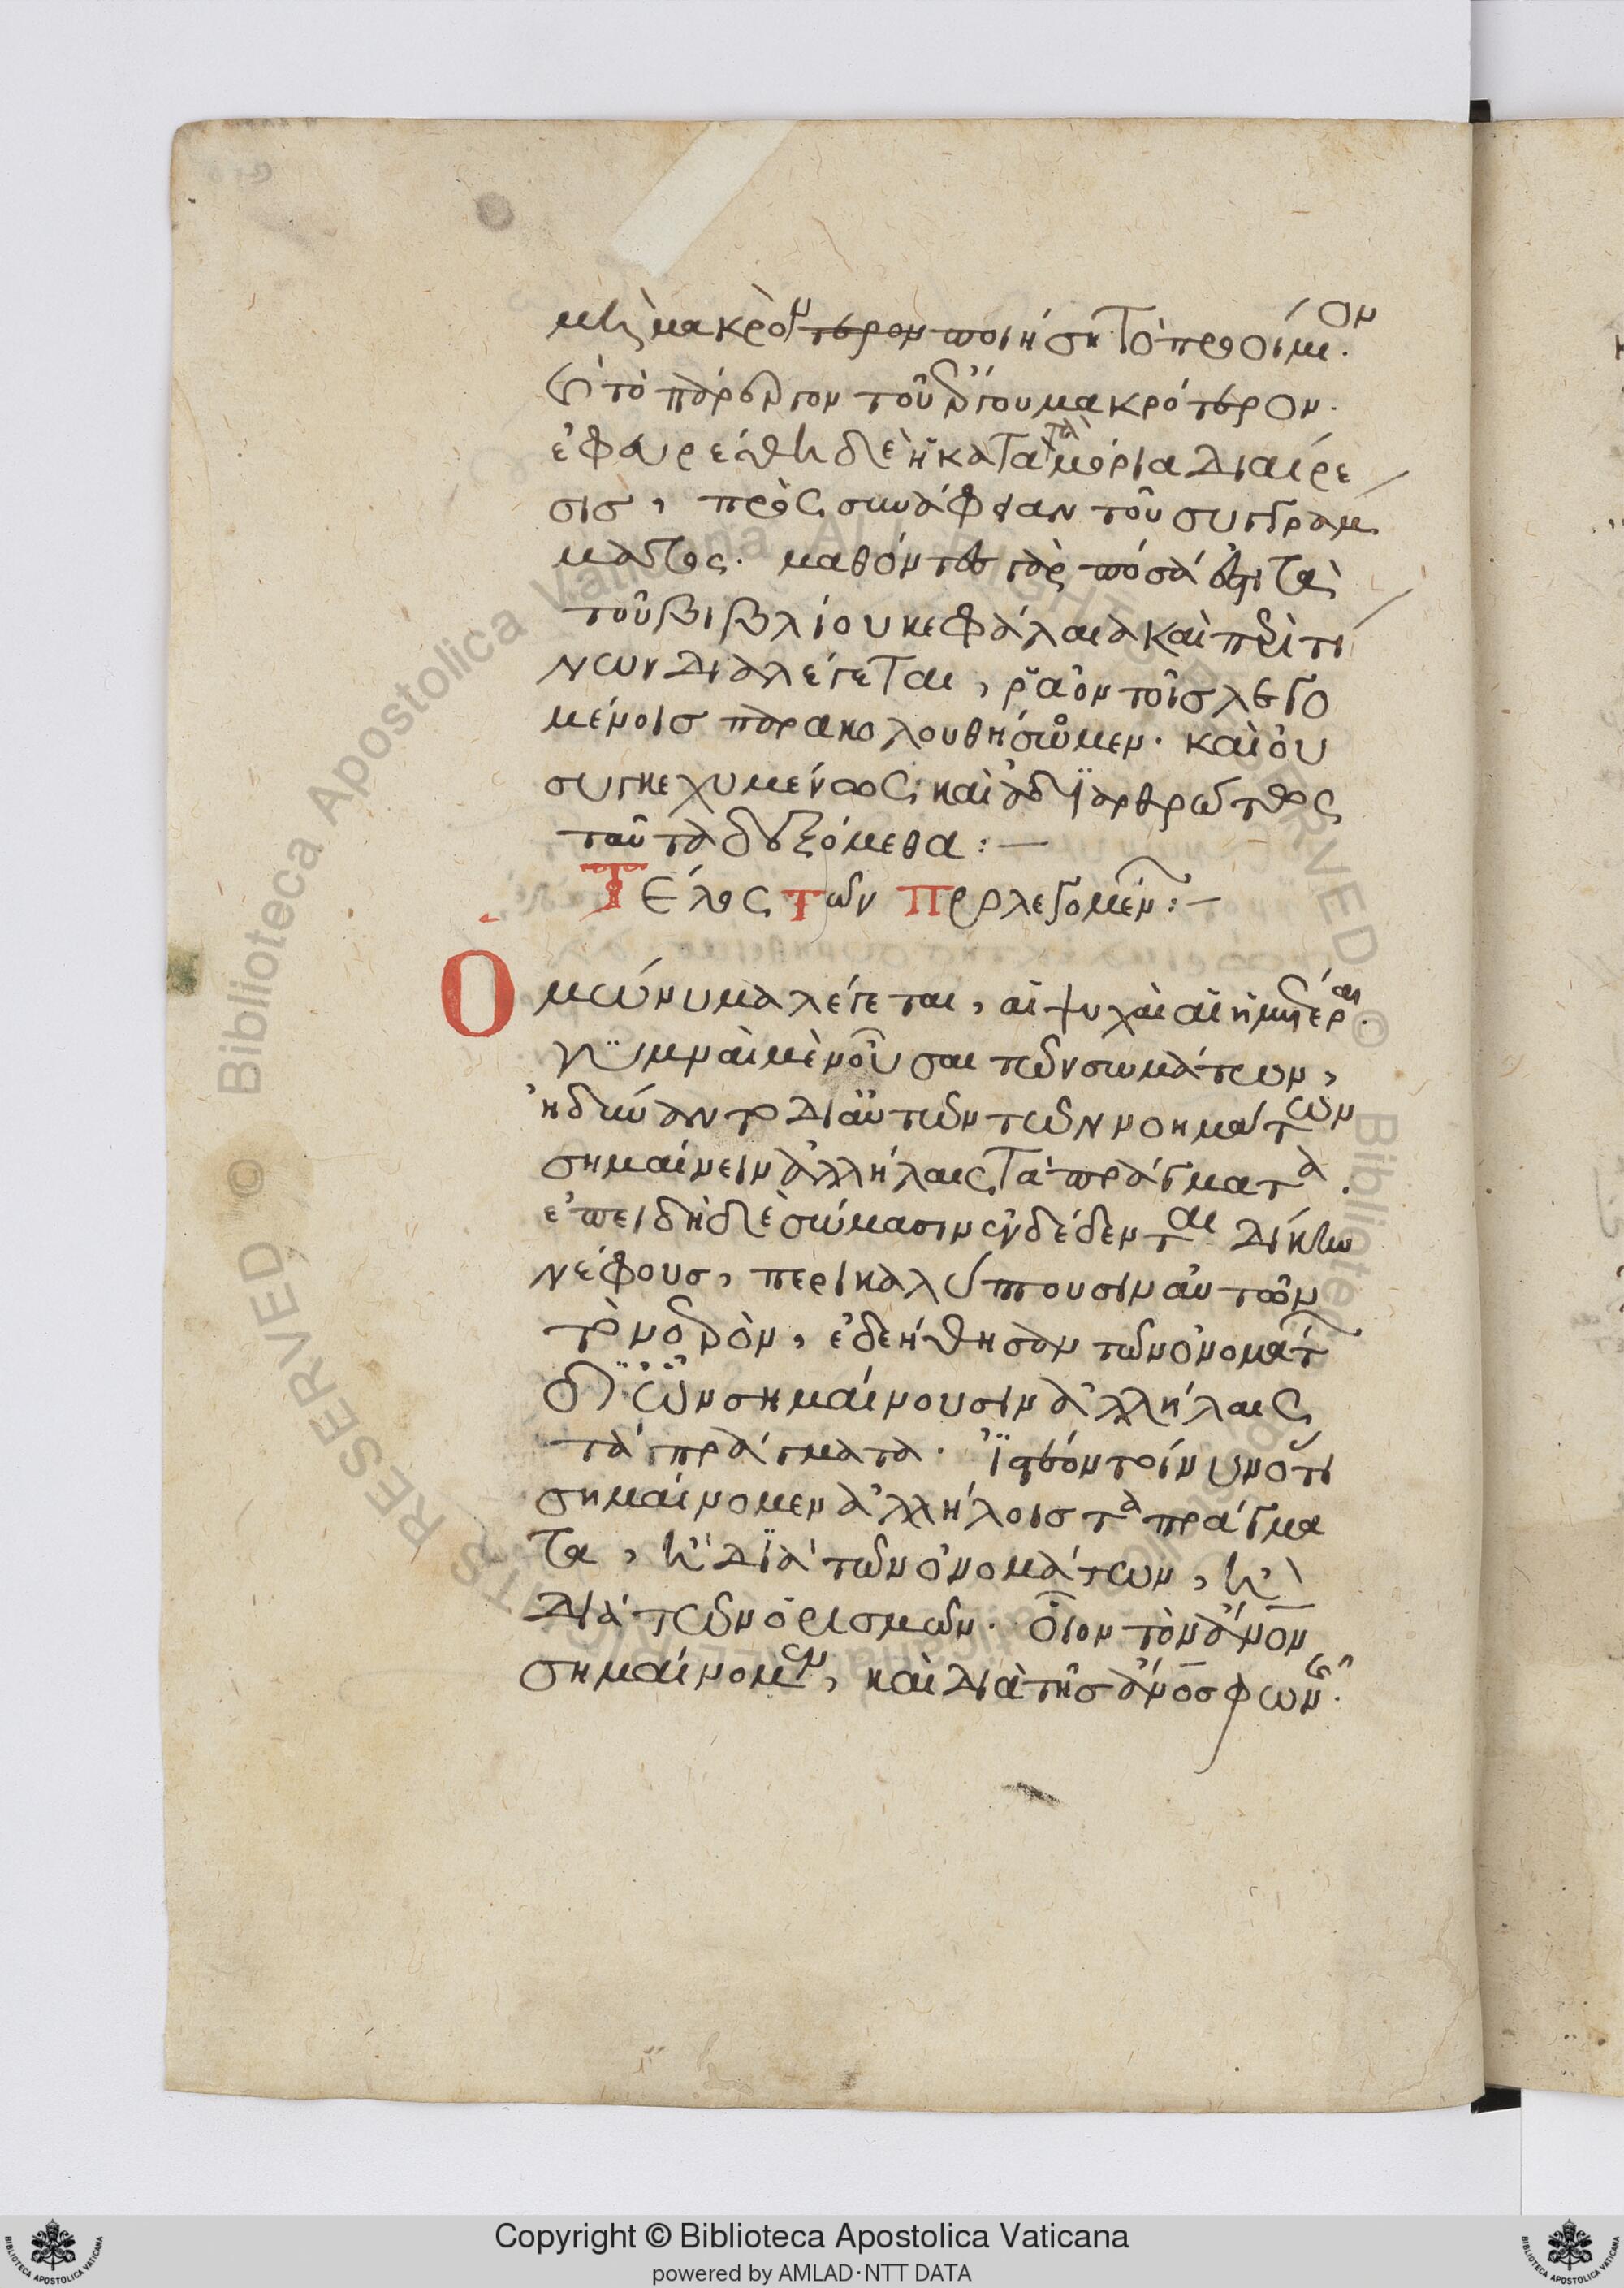 μὴ μακρὸν τερον ποιήση τὸ προοίμιον.
καὶ τὸ πάρεργον τοῦ ἔργου μακρότερον.
ἐφευρέθη δὲ ἡ κατὰ τὰ μόρια διαίρε
σισ, πρὸς συνάφειαν τοῦ συγγράμ
ματος. μαθόντες γὰρ πόσά ἐστι τὰ
τοῦ βιβλίου κεφάλαια καὶ περὶ τί
νων διαλέγεται, ῥᾶον τοῖσ λεγο
μένοισ παρακολουθήσωμεν. καὶ οὐ
συγκεχυμένως καὶ ἀδϊαρθρώτως
ταῦτα δεξόμεθα:—
Τέλος τῶν Προλεγομέν:—
Ὁμώνυμα λέγεται, αἱ ψυχαὶ αἱ ἡμέτεραι.
γυμναὶ μὲν οὖσαι τῶν σωμάτων,
ἠδύναντο δι αὐτῶν τῶν νοημάτων
σημαίνειν ἀλλήλαις τὰ πράγματα.
ἐπειδὴ δὲ σώμασιν συνδέδενται δίκην
νέφουσ, περικαλύπτουσιν αὐτῶν
τὸ νοερὸν, ἐδεήθησαν τῶν ὀνομάτ
δι ὧν σημαίνουσιν ἀλλήλαις
τὰ πράγματα. Ἰστέον τοίνυν ὅτι
σημαίνομεν ἀλλήλοισ τὰ πράγμα
τα, ἢ διὰ τῶν ὀνομάτων, ἢ
διὰ τῶν ὁρισμῶν. οἷον τὸν ἄνον
σημαίνομεν, καὶ διὰ τῆσ ἄνοσ φωνῆς.
Copyright © Biblioteca Apostolica Vaticana
powered by AMLAD·NTT DATA